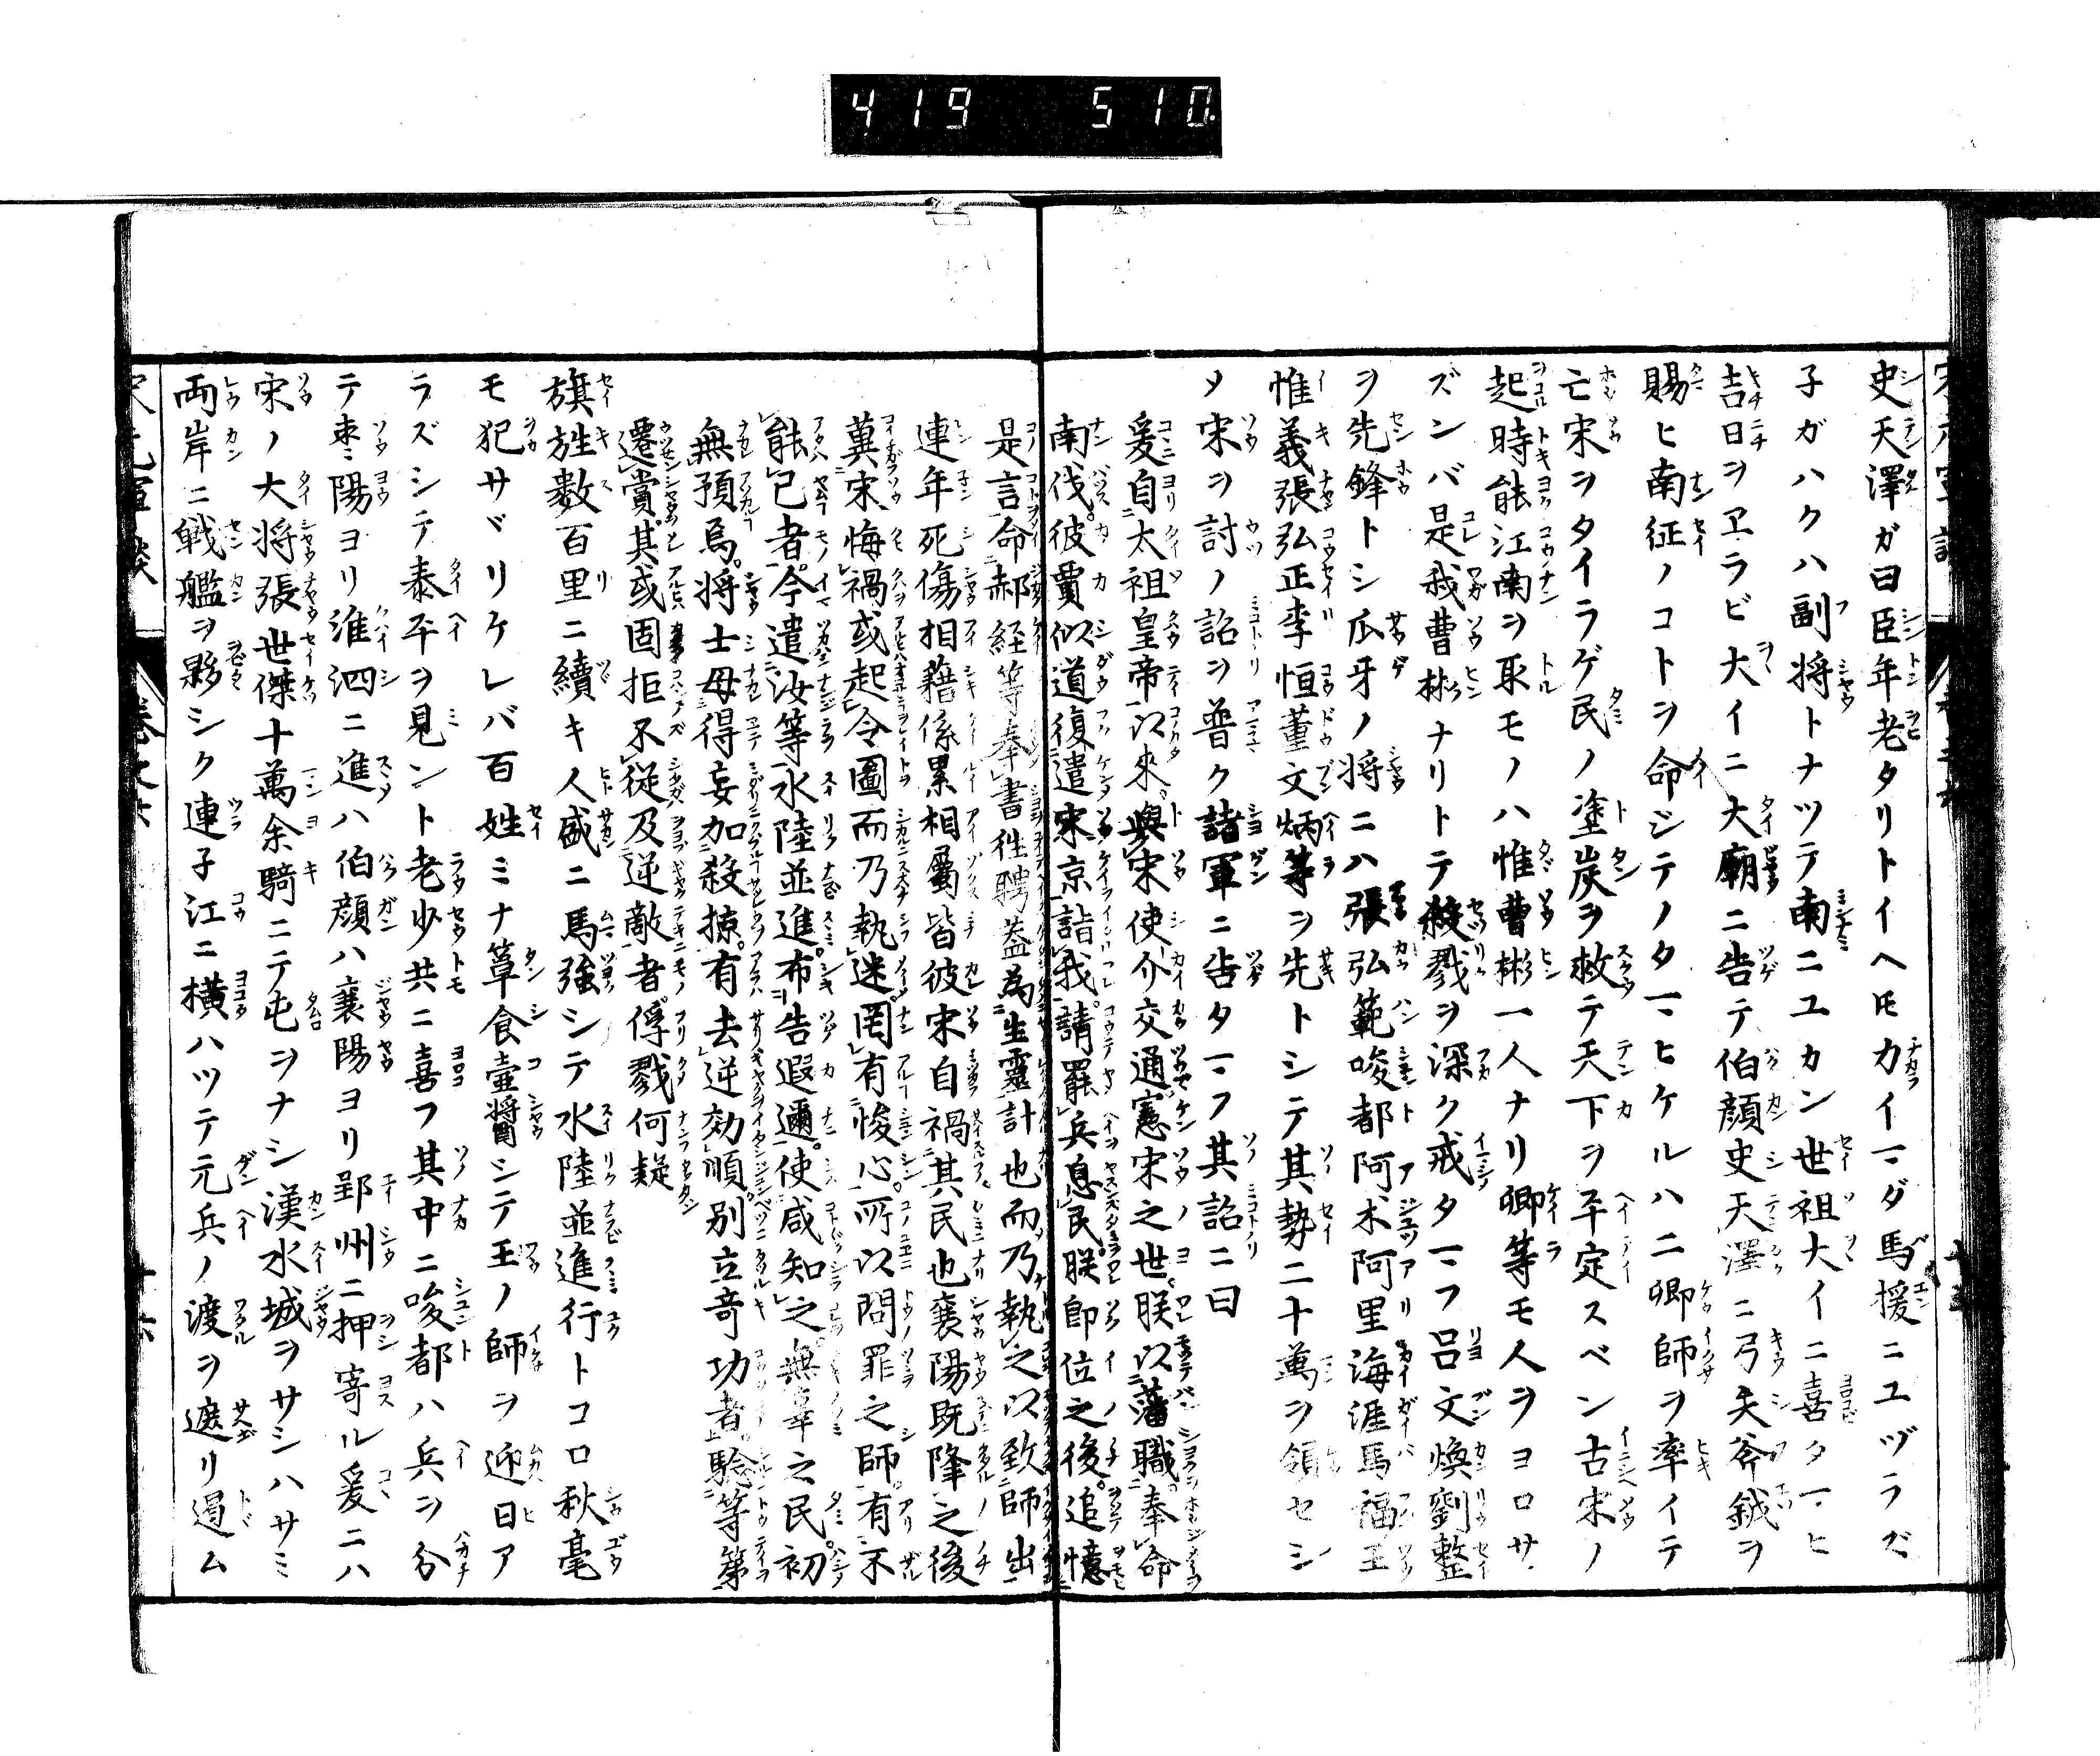 419 510
史天澤ガ曰臣年老タリトイヘ𪜈力イマダ馬援ニユヅラズ
子ガハクハ副将トナツテ南ニユカン世祖大イニ喜タマヒ
吉日ヲヱラビ大イニ大廟ニ告テ伯顔史天澤ニ弓矢斧鉞ヲ
賜ヒ南征ノコトヲ命ジテノタマヒケルハ二卿師ヲ率イテ
亡宋ヲタイラゲ民ノ塗炭ヲ救テ天下ヲ平定スベン古宋ノ
起時能江南ヲ取モノハ惟曹彬一人ナリ卿等モ人ヲヨロサ
ズンバ是我曹彬ナリトテ殺戮ヲ深ク戒タマフ呂文煥劉整
ヲ先鋒トシ爪牙ノ将ニハ張弘範唆都阿朮阿里海涯馬福王
惟義張弘正李恒董文炳等ヲ先トシテ其勢二十萬ヲ領セシ
メ宋ヲ討ノ詔ヲ普ク諸軍ニ告タマフ其詔ニ曰
爰自太祖皇帝以來與宋使介交通憲宗之世朕以藩職奉命
南伐彼賈似道復遣宋京詣我請罷兵息民朕即位之後追憶
是言命郝経等奉書徃聘蓋為生靈計也而乃執之以致師出
連年死傷相藉係累相屬皆彼宋自禍其民也襄陽既降之後
冀宋悔禍或起令圖而乃執迷罔有悛心所以問罪之師有不
能已者今遣汝等水陸並進布告遐邇使咸知之無辜之民初
無預焉将士毋得妄加殺掠有去逆効順別立奇功者驗等第
遷賞其或固拒不從及逆敵者俘戮何疑
旗旌數百里ニ續キ人盛ニ馬強シテ水陸並進行トコロ秋毫
モ犯サヾリケレバ百姓ミナ簞食壺醬シテ王ノ師ヲ迎日ア
ラズシテ泰平ヲ見ント老少共ニ喜フ其中ニ唆都ハ兵ヲ分
テ棗陽ヨリ淮泗ニ進ハ伯顔ハ襄陽ヨリ郢州ニ押寄ル爰ニハ
宋ノ大将張世傑十萬余騎ニテ屯ヲナシ漢水城ヲサシハサミ
両岸ニ戦艦ヲ夥シク連子江ニ横ハツテ元兵ノ渡ヲ遮リ遏ム